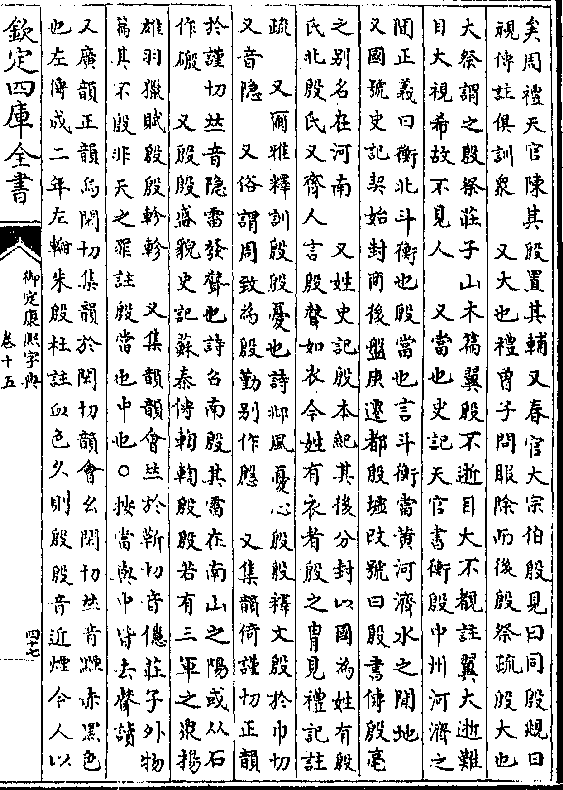 矣周禮天官陳其殷置其輔又春官大宗伯殷見曰同殷覜曰
視傳註俱訓衆　又大也禮曾子問服除而後殷祭疏殷大也
大祭謂之殷祭莊子山木篇翼殷不逝目大不覩註翼大逝難
目大視希故不見人　又當也史記天官書衡殷中州河濟之
間正義曰衡北斗衡也殷當也言斗衡當黃河濟水之間地
又國號史記契始封商後盤庚遷都殷墟改號曰殷書傳殷亳
之别名在河南　又姓史記殷本紀其後分封以國為姓有殷
氏北殷氏又齊人言殷聲如衣今姓有衣者殷之胄見禮記註
疏　又爾雅釋訓殷殷憂也詩邶風憂心殷殷釋文殷於巾切
又音隐　又俗謂周致為殷勤别作慇　又集韻倚謹切正韻
於謹切𠀤音隐雷發聲也詩召南殷其靁在南山之陽或从石
作磤　又殷殷盛貌史記蘇泰傳輷輷殷殷若有三軍之衆揚
雄羽獵賦殷殷軫軫　又集韻韻會𠀤於靳切音億莊子外物
篇其不殷非天之罪註殷當也中也○按當與中皆去聲讀
又廣韻正韻烏閑切集韻於閑切韻會幺閑切𠀤音黫赤黑色
也左傳成二年左輪朱殷杜註血色久則殷殷音近煙今人以
欽定四庫全書
御定康熙字典
卷十五
四十七